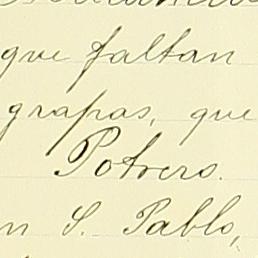 que faltan
grapas, que
Potrero.
n S. Pablo,